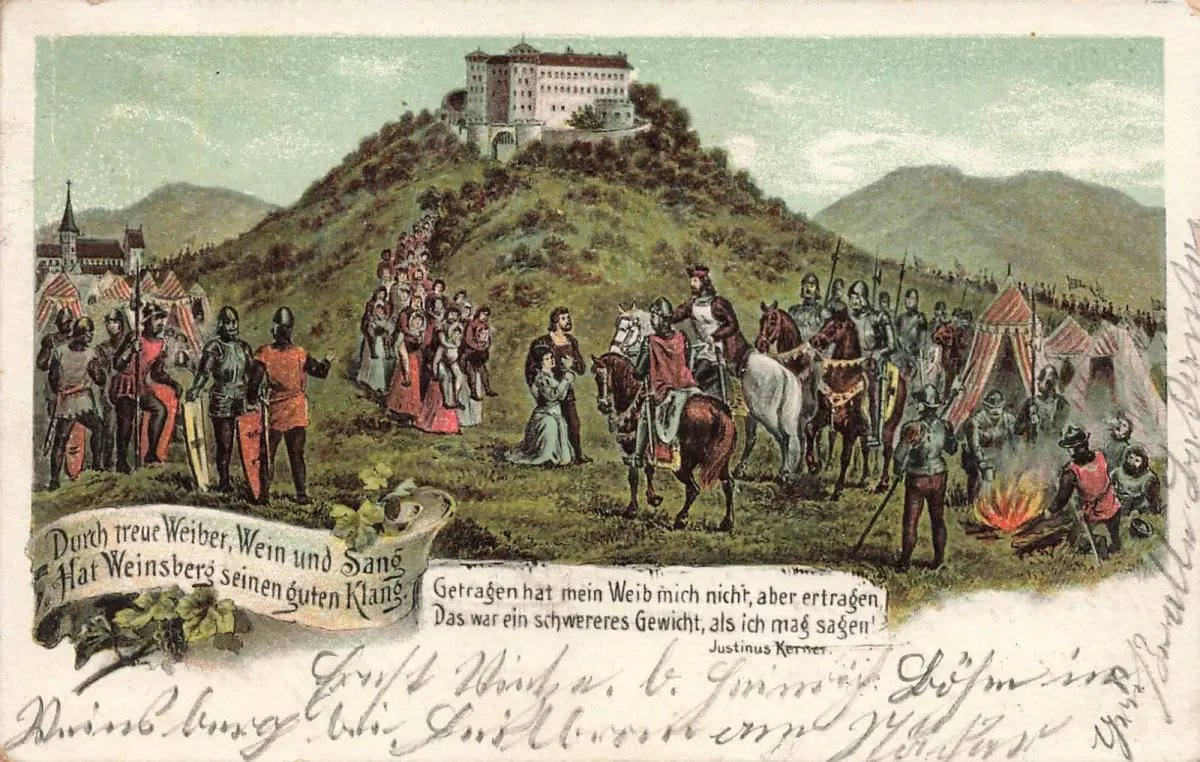 Durch treue Weiber, Wein und Sang
Hat Weinsberg seinen guten Klang.
Getragen hat mein Weib mich nicht, aber ertragen,
Das war ein schwereres Gewicht, als ich mag sagen!
Justinus Kerner.
Ernst b. Böhm in
Weinsberg bei Heilbronn am Näckar